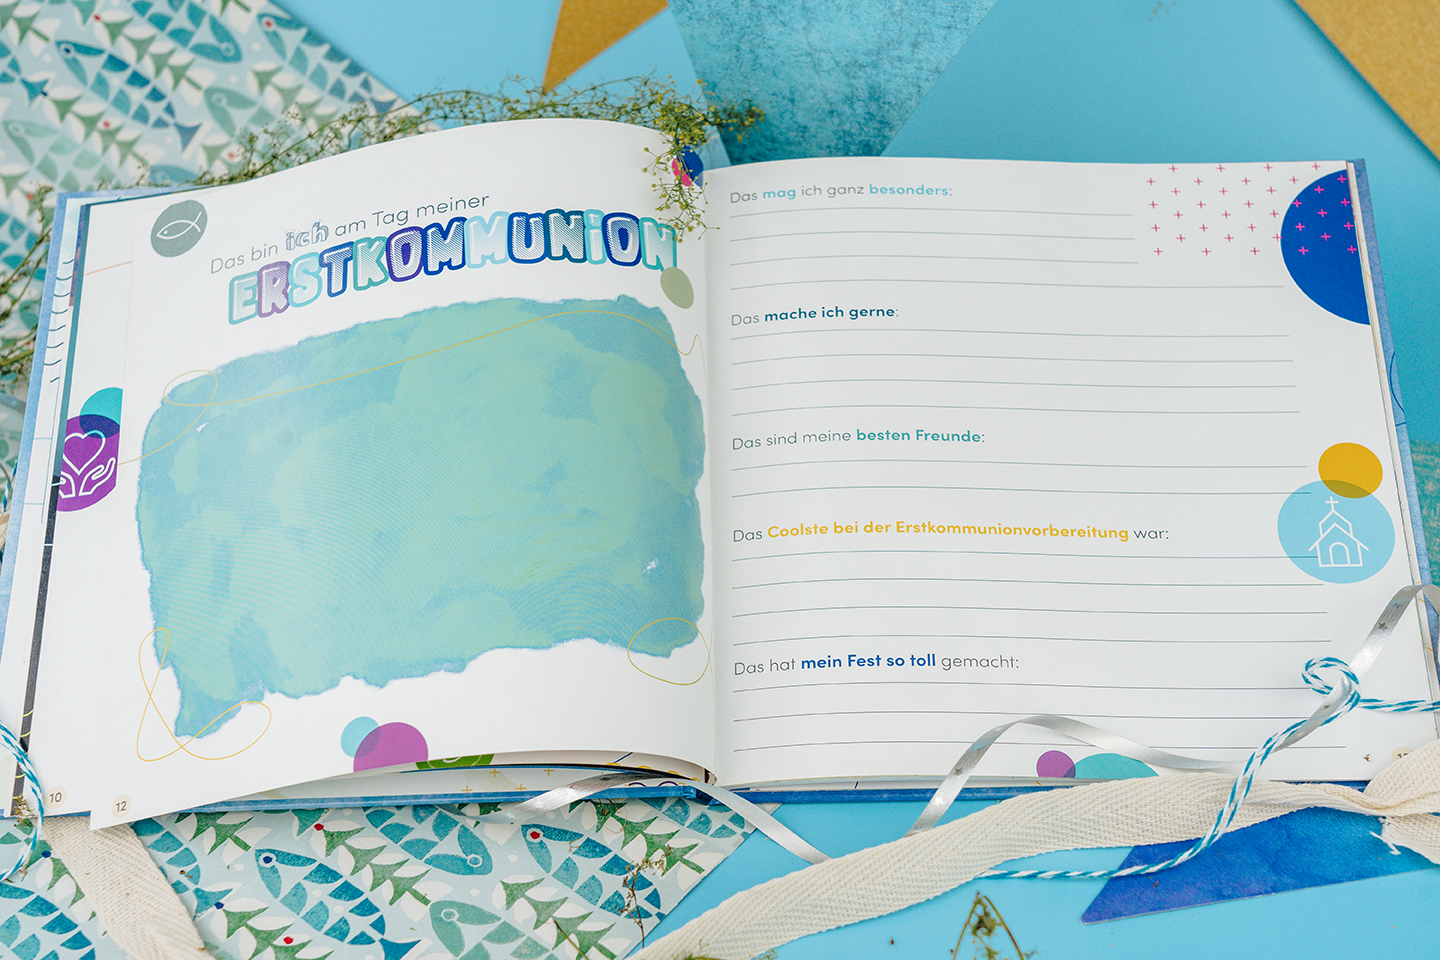 Das bin ich am Tag meiner
ERSTKOMMUNION
10
12
Das mag ich ganz besonders:
Das mache ich gerne:
Das sind meine besten Freunde:
Das Coolste bei der Erstkommunionvorbereitung war:
Das hat mein Fest so toll gemacht: